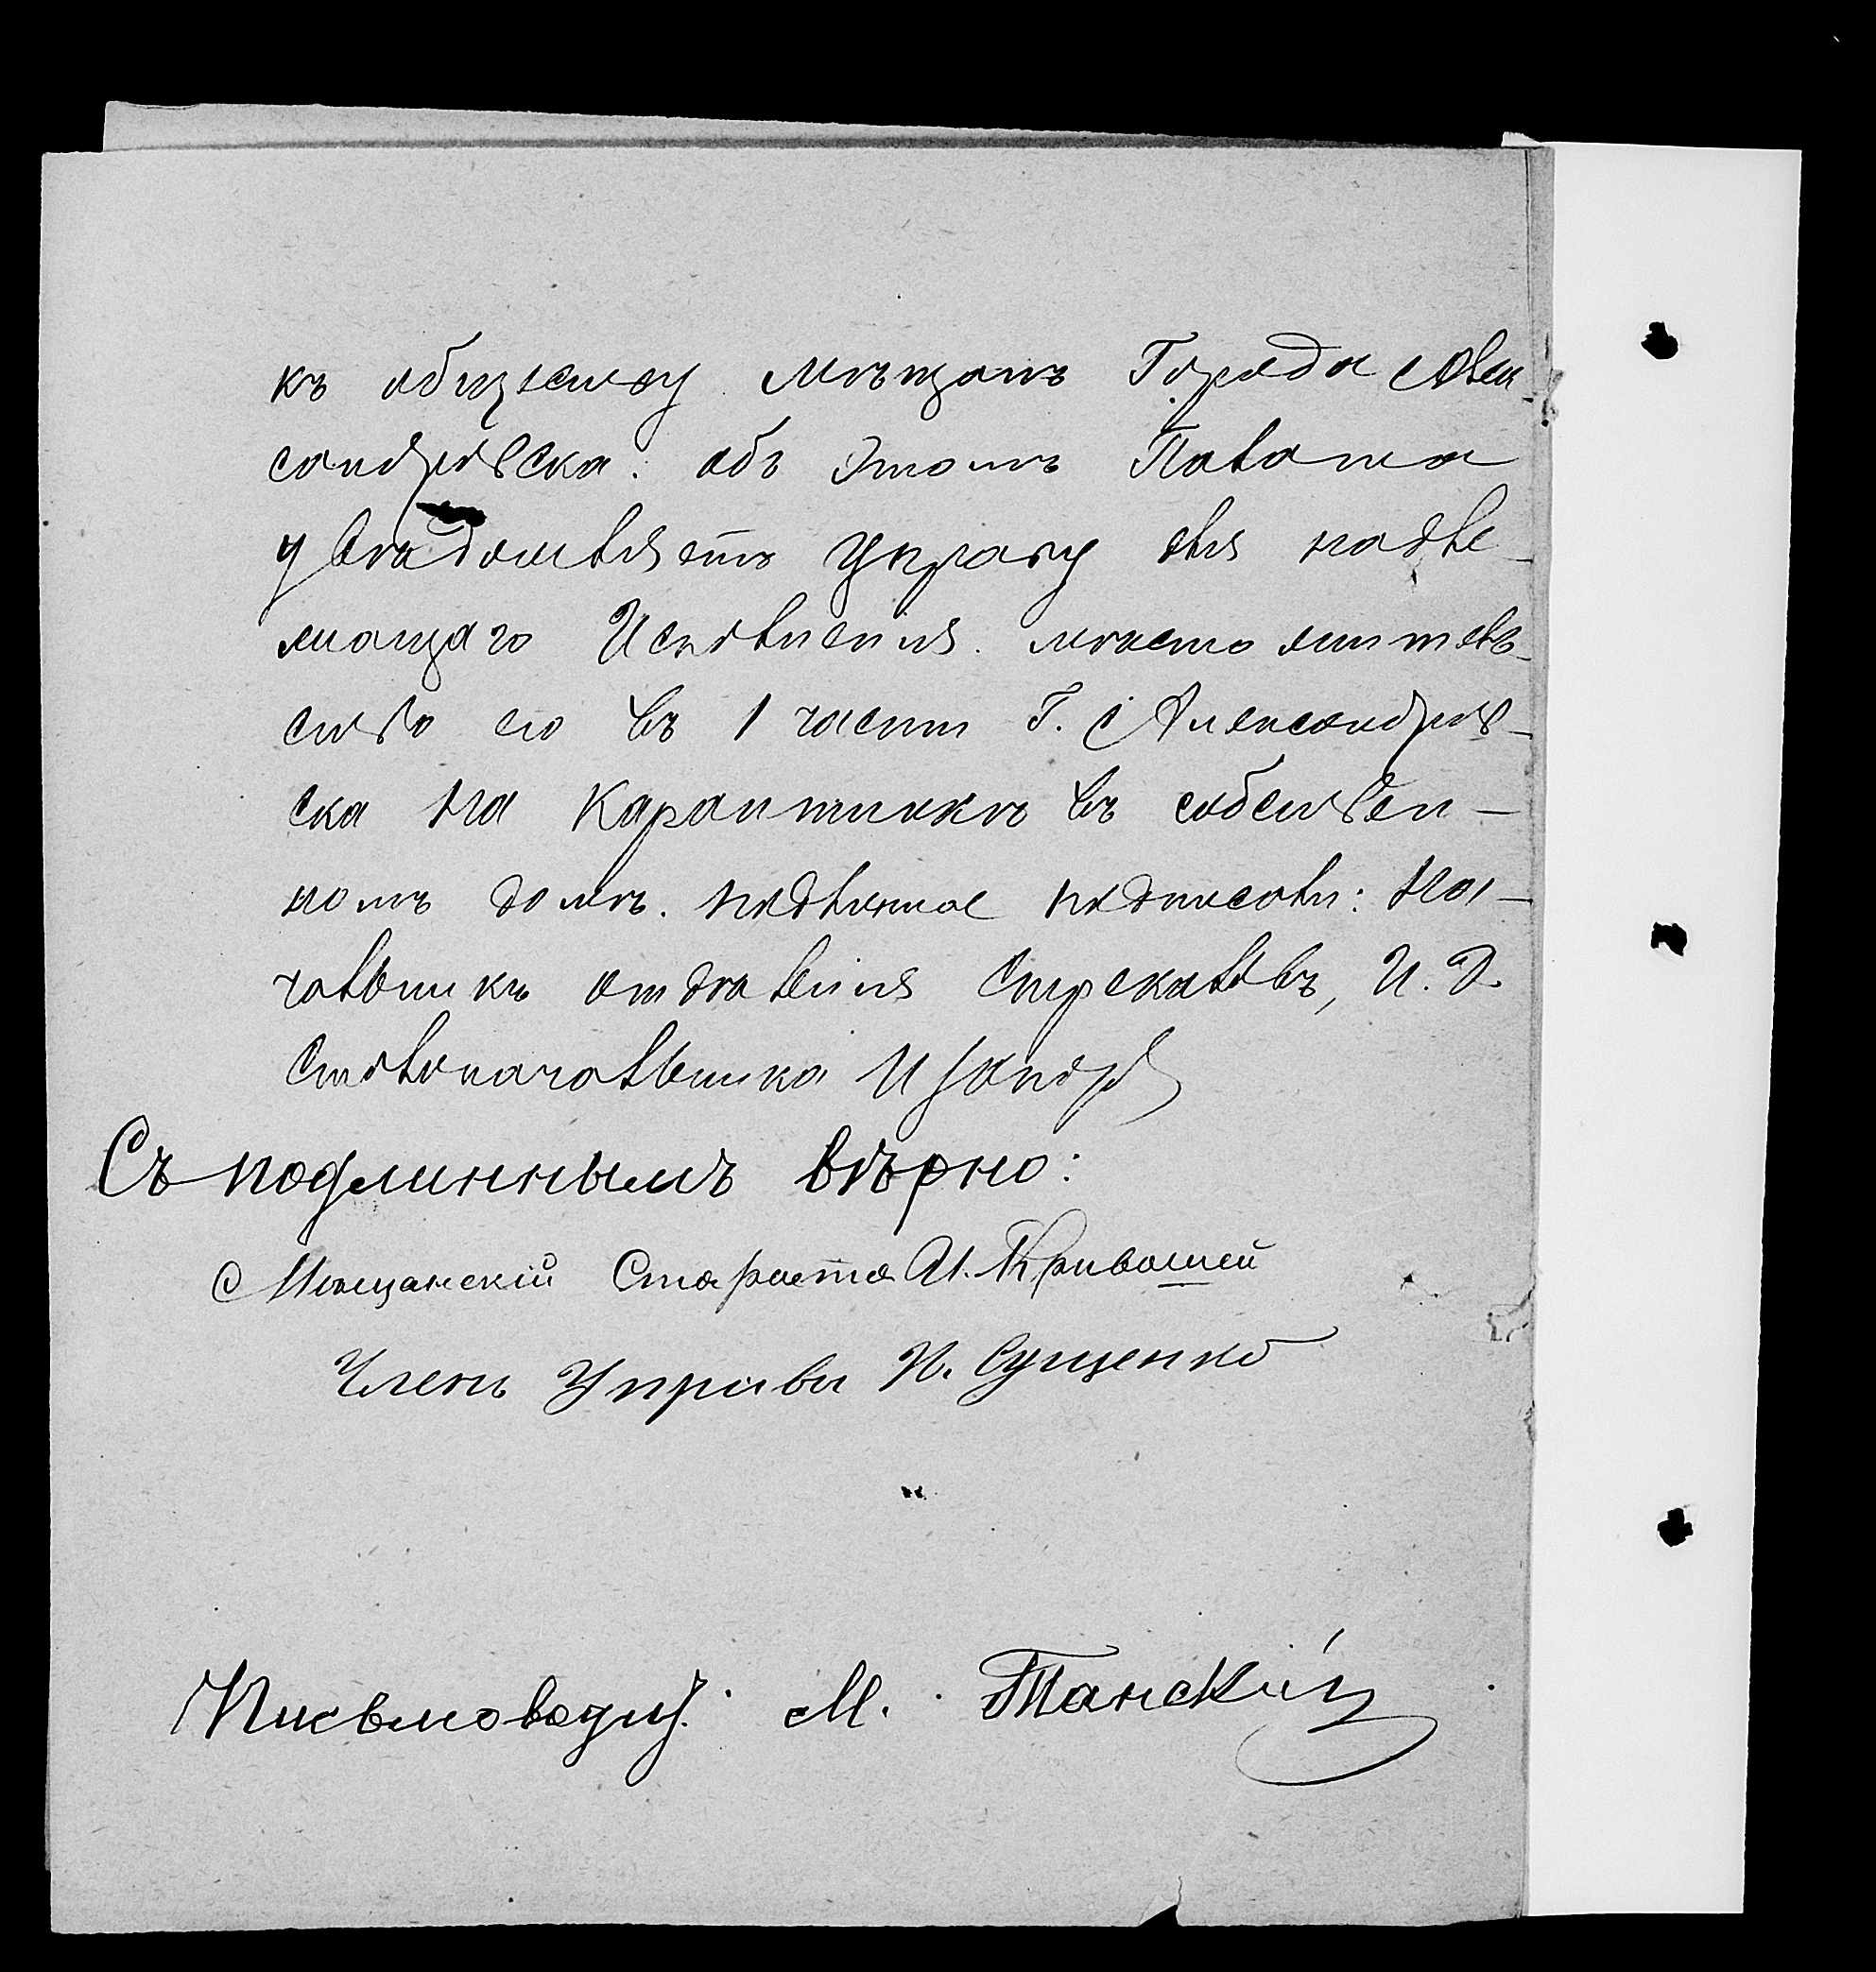 къ общему мѣщанъ Города Алек
сандровска. объ этомъ Палата
увѣдомляетъ управу для надле-
жащаго Исполненія. мѣсто житель-
ство его въ 1 части Г. Александров-
ска на Карантинкѣ въ собствен-
номъ домѣ. подлинное подписали: На-
чальникъ отдѣленія Стрекаловъ, И. Д.
Столоначальника
Съ подлиннымъ вѣрно:
Мѣщанскій Староста И. Кривошей
Членъ Управы И. Сущенко
Письмоводит. М. Танскій